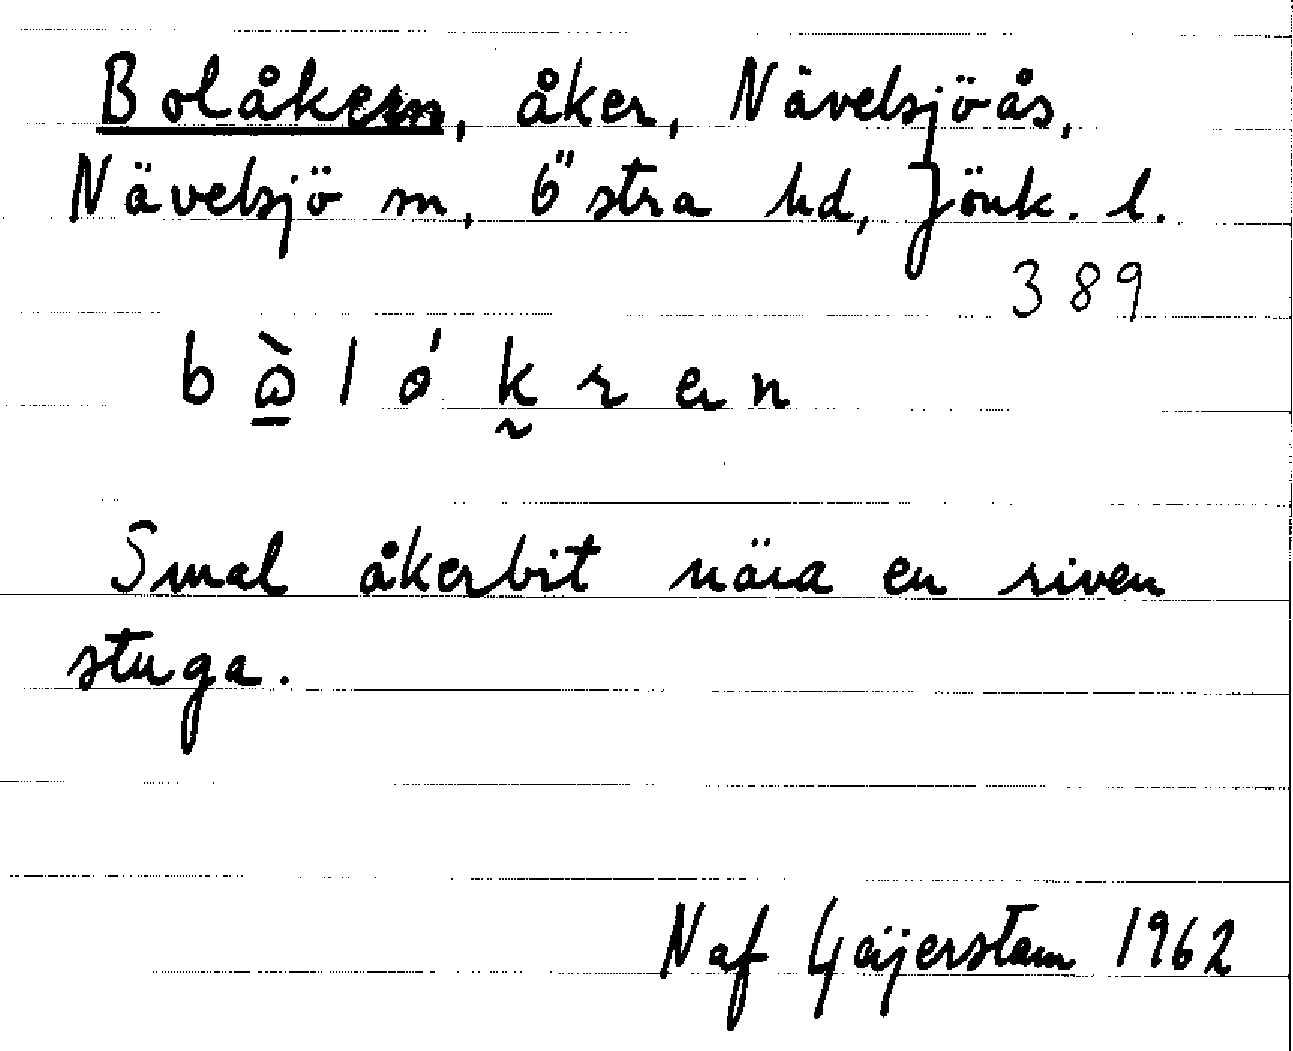 Bolåkern, åker, Nävelsjöås,
Nävelsjö sn, Östra hd, Jönk. l.
389
b ὼ̲ l ó k̰ r e n
Smal åkerbit nära en riven
stuga.
N af Geijerstam 1962